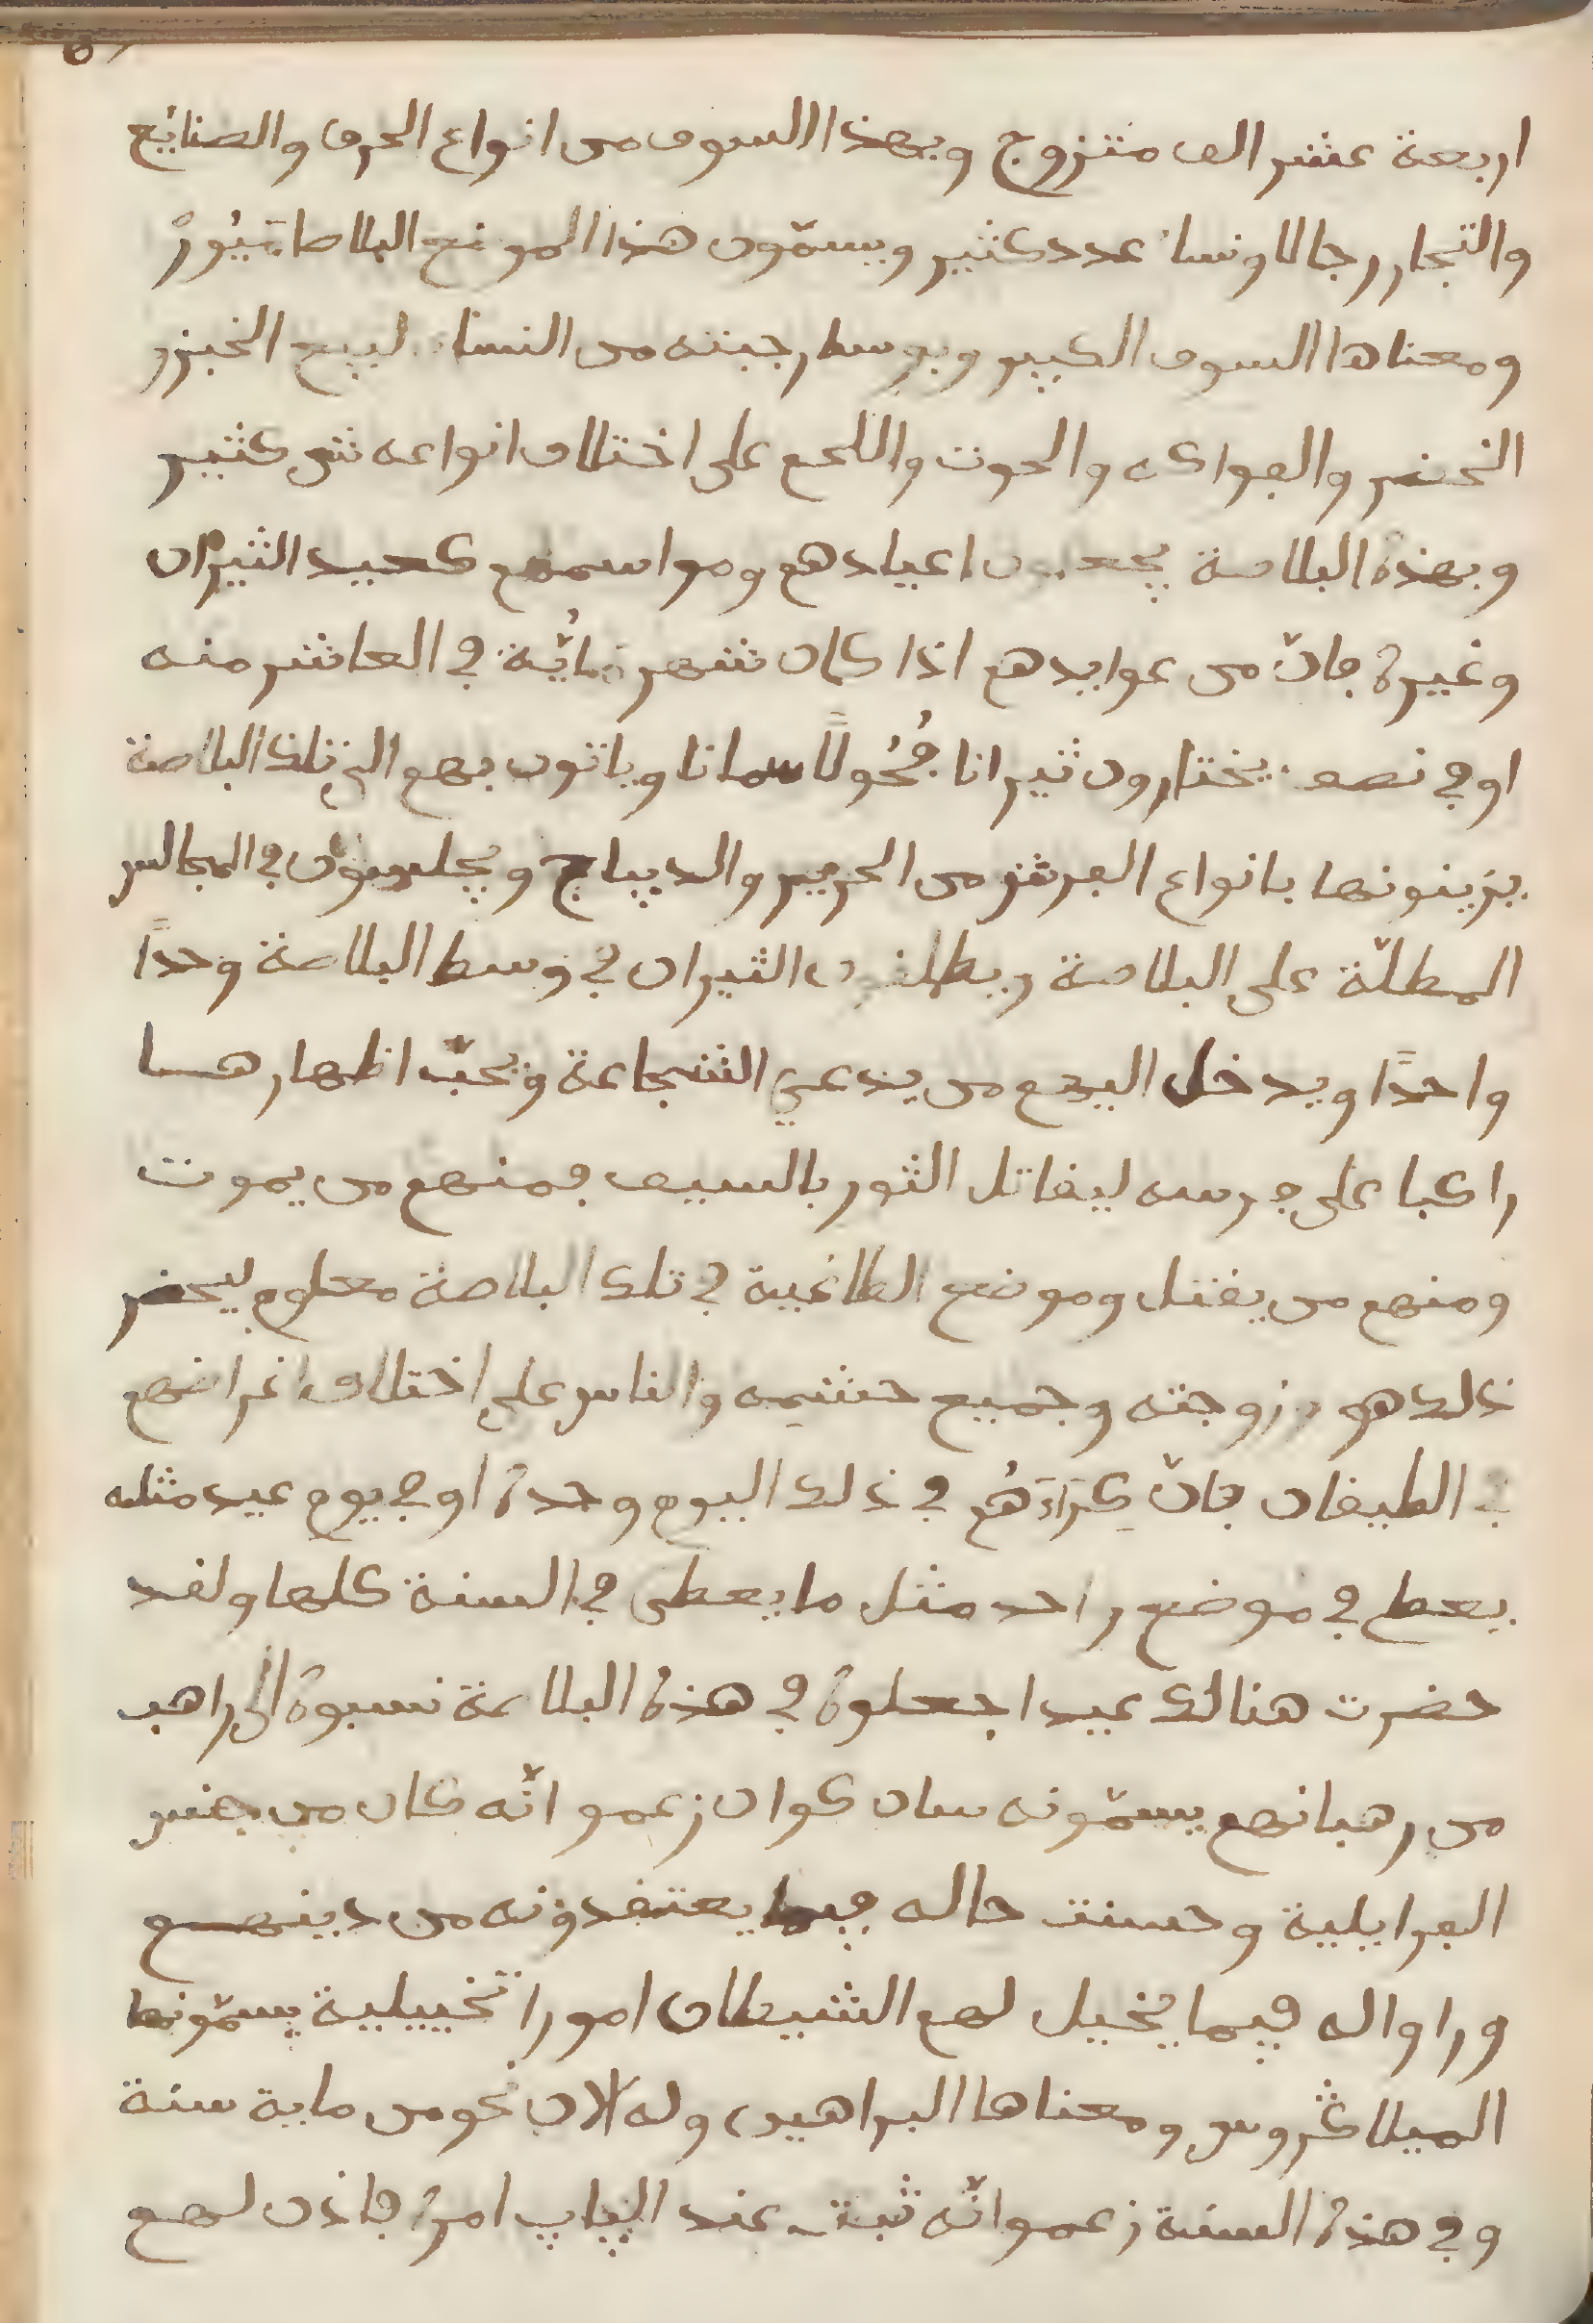 اربعة عشر الف متزوج وبهذا السوق من انواع الحرف والصنايع
والتجار رجالا ونساء عدد كثير ويسمّون هذا الموضع البلاصا ميُورْ
ومعناها السوق الكبير وبوسط رحبته من النساء لبيع الخبز و
الخضر والفواكه والحوت واللحم على اختلاف انواعه شى كثير
وبهذه البلاصة يجعلون اعيادهم ومواسمهم كعيد الثيران
وغيره فانّ من عوايدهم اذا كان شهر مايُّه في العاشر منه
او في نصفه يختارون ثيرانا فُحُولًا سمانا وياتون بهم الى تلك البلاصة
يزينونها بانواع الفرش من الحرير والديباج ويجلسون في المجالس
المطلّة على البلاصة ويطلقون الثيران في وسط البلاصة وحدًا
واحدًا ويدخل اليهم من يدعي الشجاعة ويحبّ اظهارها
راكبا على فرسه ليقاتل الثور بالسيف فمنهم من يموت
ومنهم من يقتل وموضع الطاغية في تلك البلاصة معلوم ليحضر
ذلك هو وزوجته وجميع حشيمه والناس على اختلاف اغراضهم
في الطيقان فانّ كِرَاءَهُم في ذلك اليوم وحده او في يوم عيد مثله
يعطى في موضع واحد مثل ما يعطى في السنة كلها ولقد
حضرت هنالك عيدا جعلوه في هذه البلاصة نسبوه الى راهب
من رهبانهم يسمّونه سان كوان زعمو انّه كان من جنس
الفرايلية وحسنت حاله فيما يعتقدونه من دينهم
وراوا له فيما يخيل لهم الشيطان امورا تخييلية يسمّونها
الميلاكروس ومعناها البراهين وله الان نحو من ماية سنة
وفي هذه السنة زعمو انّه ثبت عند الپاپ امره فاذن لهم